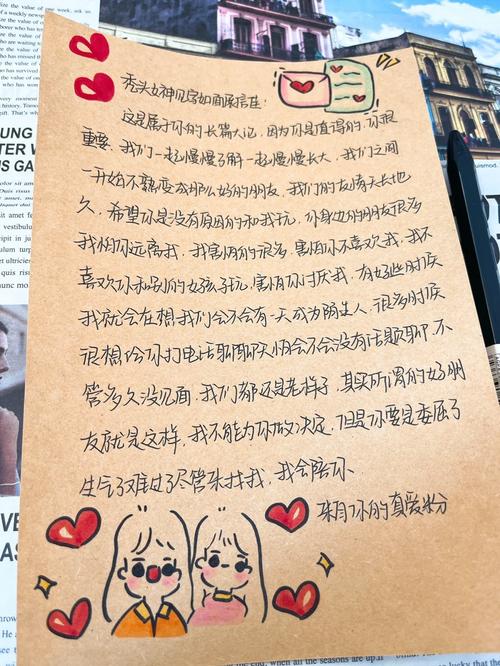 秃头女神见字如面展信佳：
这是属于你的长篇大论，因为你是值得的，你很
重要，我们一起慢慢了解一起慢慢长大，我们之间
一开始不熟变成那么好的朋友，我们的友情天长地
久，希望你是没有原因的和我玩，你身边的朋友很多
我怕你远离我，我害怕的很多，害怕你不喜欢我，我不
喜欢你和别的女孩子玩，害怕你讨厌我，有好些时候
我就会在想我们会不会有一天成为陌生人，很多时候
很想给你打电话聊聊天怕会不会没有话题聊，不
管多久没见面，我们都还是老样子，其实所谓的好朋
友就是这样，我不能为你做决定，但是你要是委屈了
生气了难过了尽管来找我，我会陪你
来自你的真爱粉